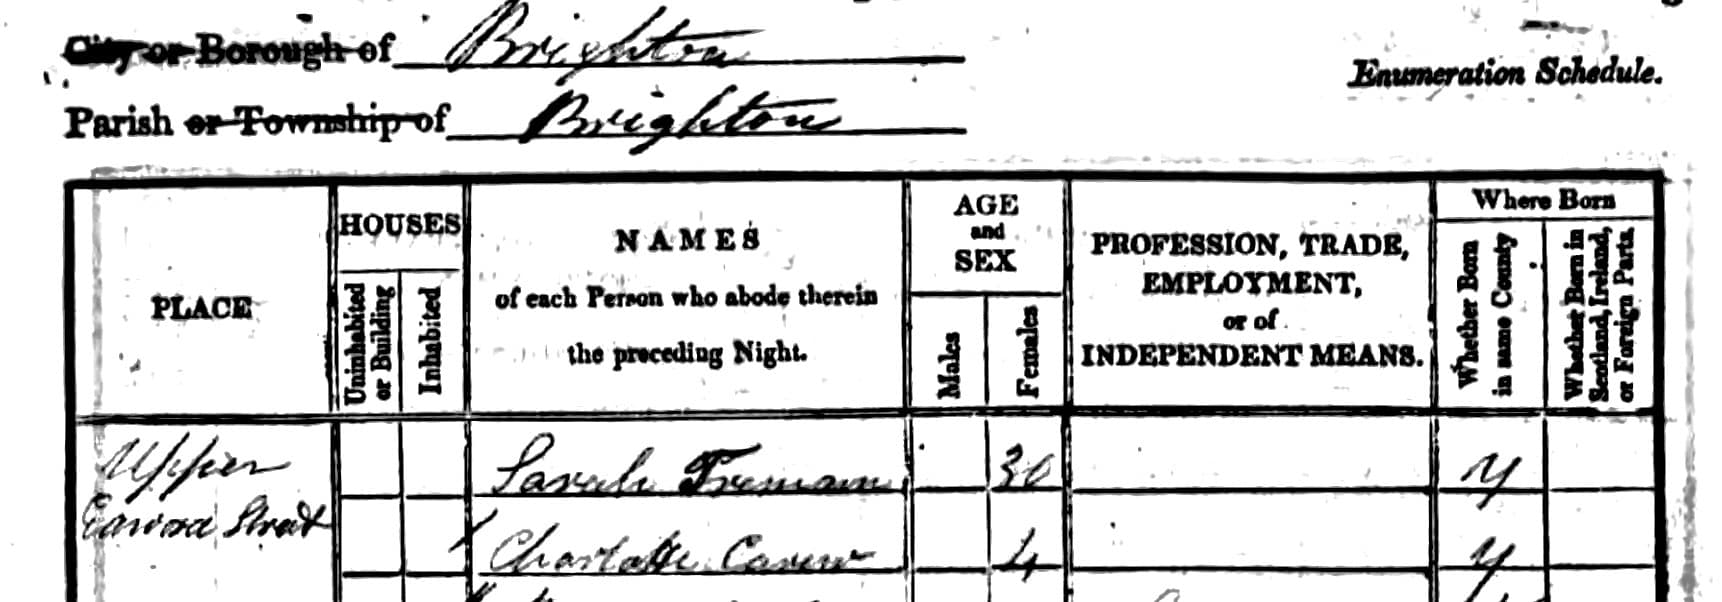 City or Borough of Brighton
Enumeration Schedule.
Parish or Township of Brighton
PLACE
HOUSES
Uninhabited
or Building
Inhabited
NAMES
of each Person who abode therein
the preceding Night.
AGE
and
SEX
Males
Females
PROFESSION, TRADE,
EMPLOYMENT,
or of
INDEPENDENT MEANS.
Where Born
Whether Born
in same County
Whether Born in
Scotland, Ireland,
or Foreign Parts.
Upper Sarah 30 y
Edward Street Charlotte 4 y